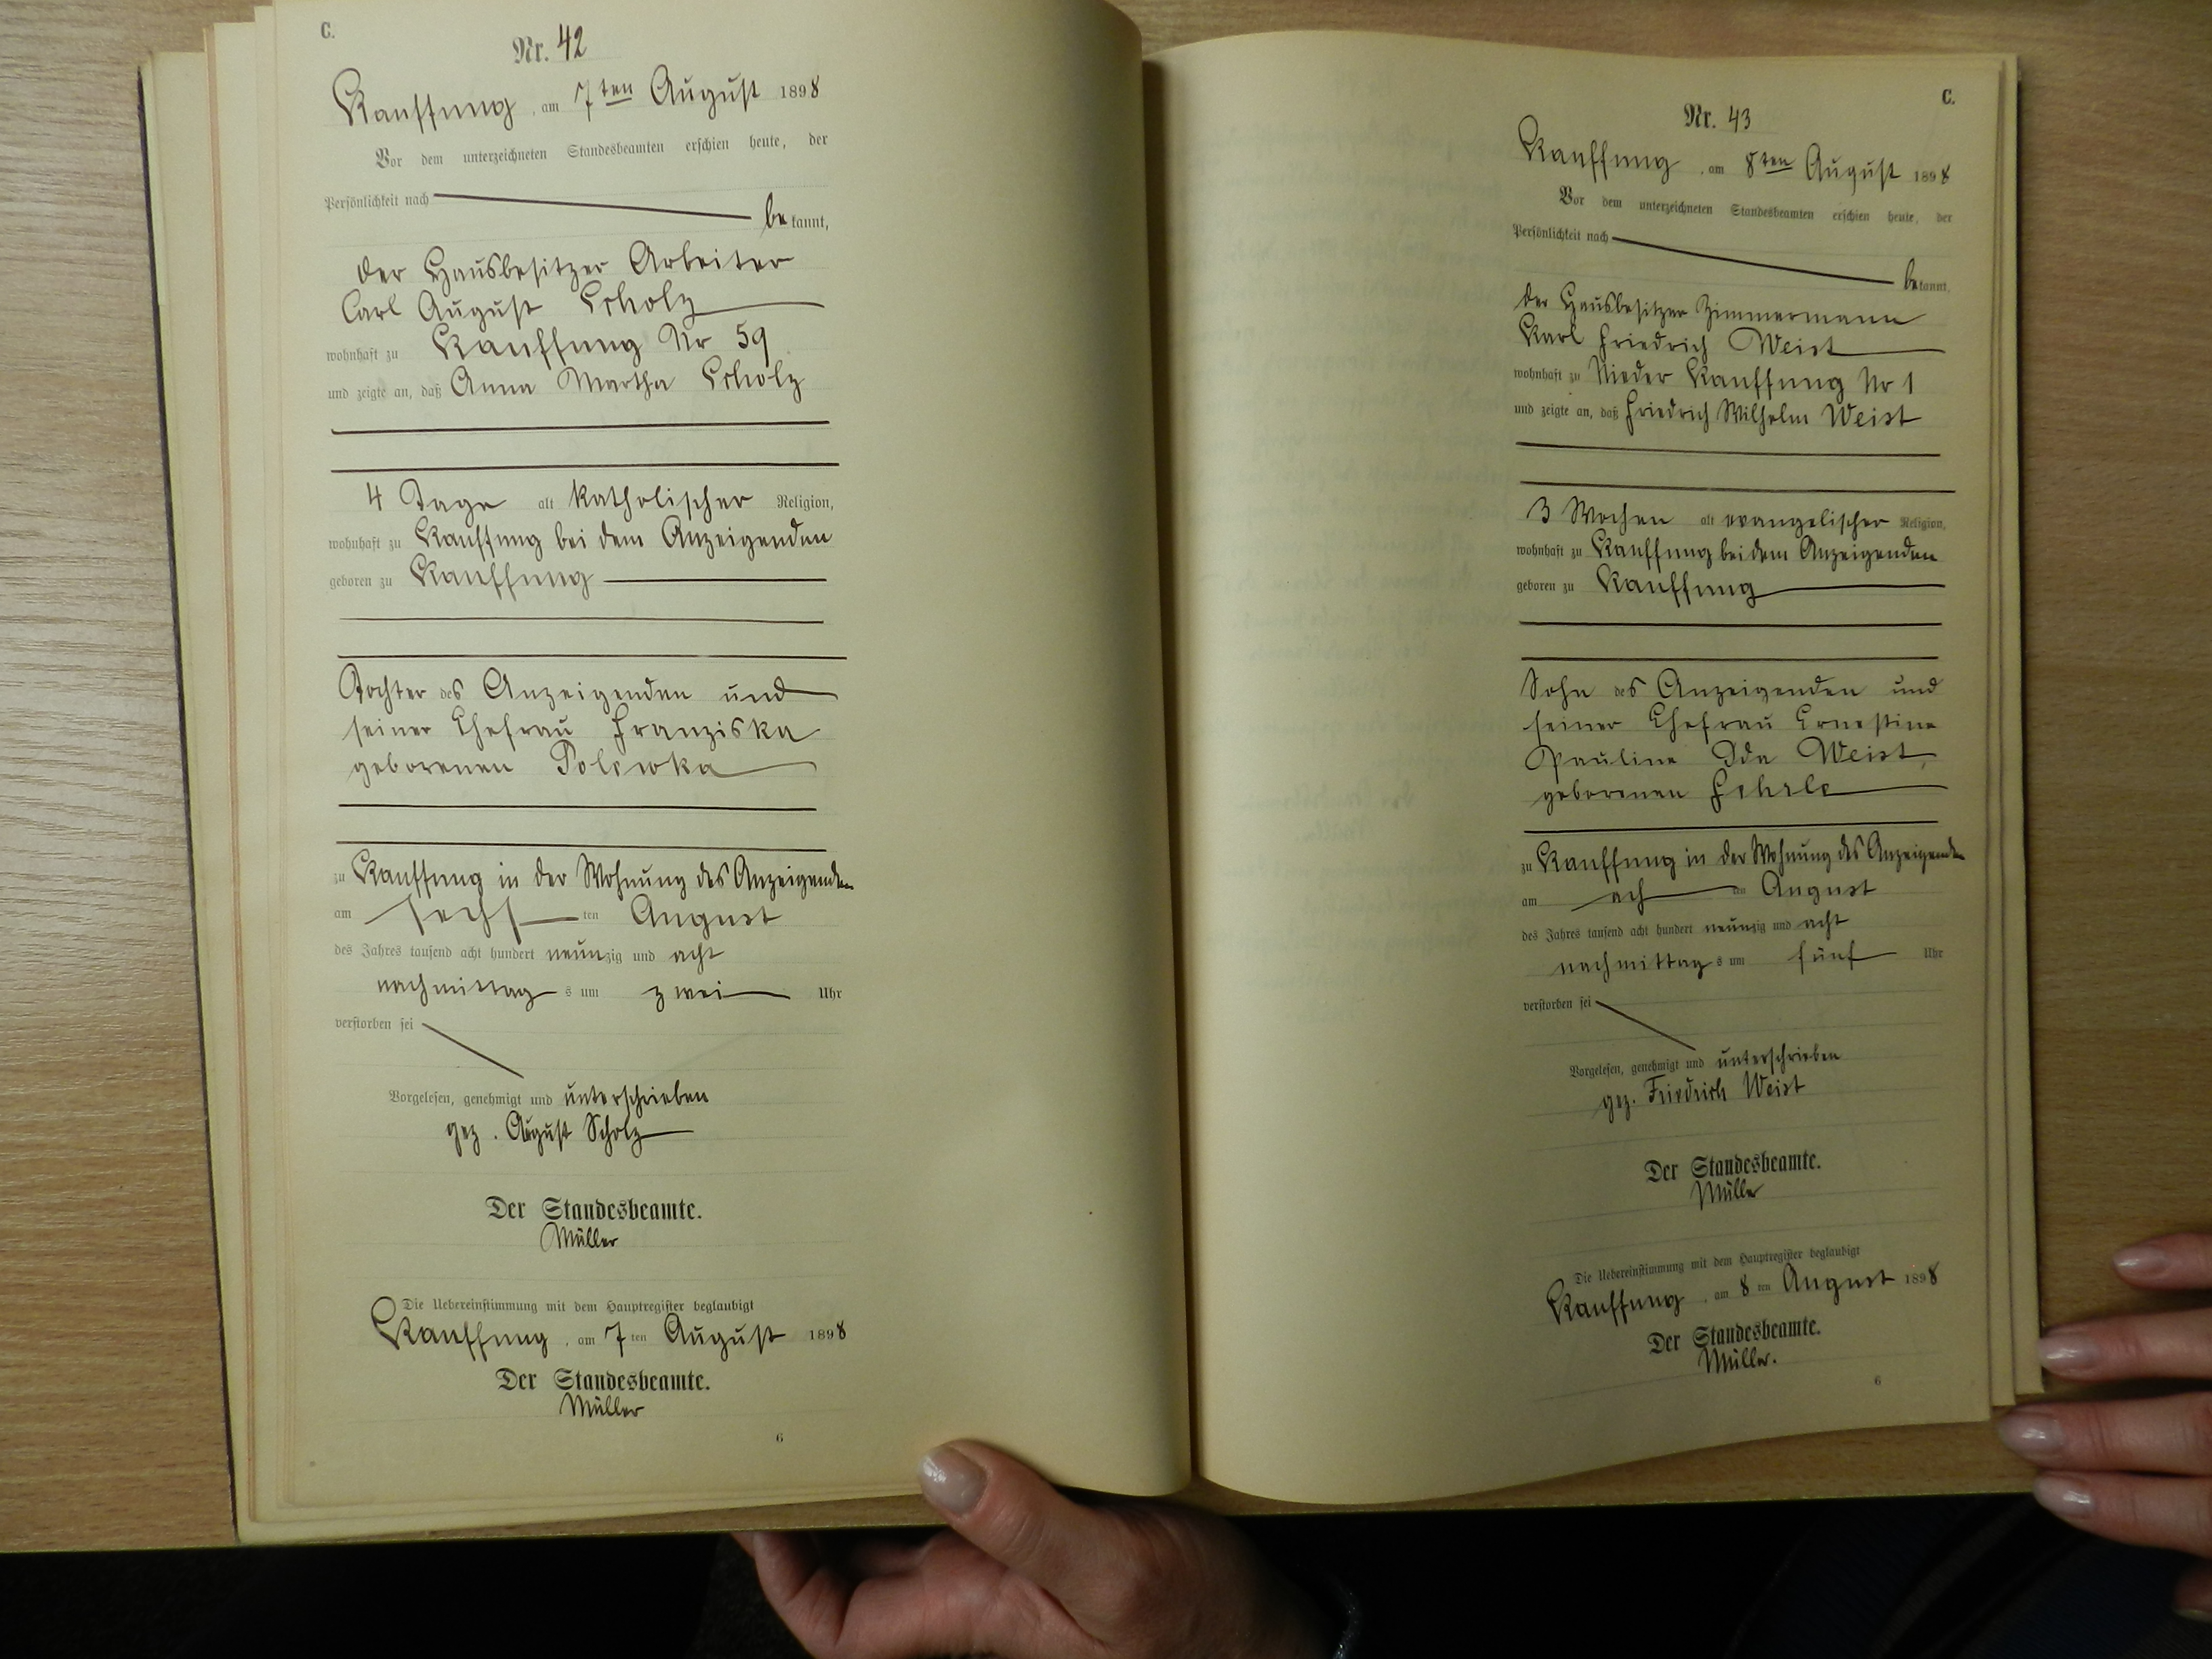 C.
Nr. 42
Kauffung, am 7ten August 1898
Vor dem unterzeichneten Standesbeamten erschien heute, der
Persönlichkeit nach
bekannt,
der Hausbesitzer Arbeiter
Carl August Scholz
wohnhaft zu Kauffung Nr 59
und zeigte an, daß Anna Martha Scholz
4 Tage alt katholischer Religion,
wohnhaft zu Kauffung bei dem Anzeigenden
geboren zu Kauffung
Tochter des Anzeigenden und
seiner Ehefrau Franziska
geborenen
zu Kauffung in der Wohnung des Anzeigenden
am sechsten August
des Jahres tausend acht hundert neunzig und acht
nachmittags um zwei Uhr
verstorben sei
Vorgelesen, genehmigt und unterschrieben
gez. August Scholz
Der Standesbeamte.
Müller
Die Uebereinstimmung mit dem Hauptregister beglaubigt
Kauffung, am 7ten August 1898
Der Standesbeamte.
Müller
6
C.
Nr. 43
Kauffung, am 8ten August 1898
Vor dem unterzeichneten Standesbeamten erschien heute, der
Persönlichkeit nach
bekannt,
der Hausbesitzer Zimmermann
Karl Friedrich Weist
wohnhaft zu Nieder Kauffung Nr 1
und zeigte an, daß Friedrich Wilhelm Weist
3 Wochen alt evangelischer Religion,
wohnhaft zu Kauffung bei dem Anzeigenden
geboren zu Kauffung
Sohn des Anzeigenden und
seiner Ehefrau Ernestine
Pauline Ida Weist,
geborenen
zu Kauffung in der Wohnung des Anzeigenden
am achten August
des Jahres tausend acht hundert neunzig und acht
nachmittags um fünf Uhr
verstorben sei
Vorgelesen, genehmigt und unterschrieben
gez. Friedrich Weist
Der Standesbeamte.
Müller
Die Uebereinstimmung mit dem Hauptregister beglaubigt
Kauffung, am 8ten August 1898
Der Standesbeamte.
Müller.
6